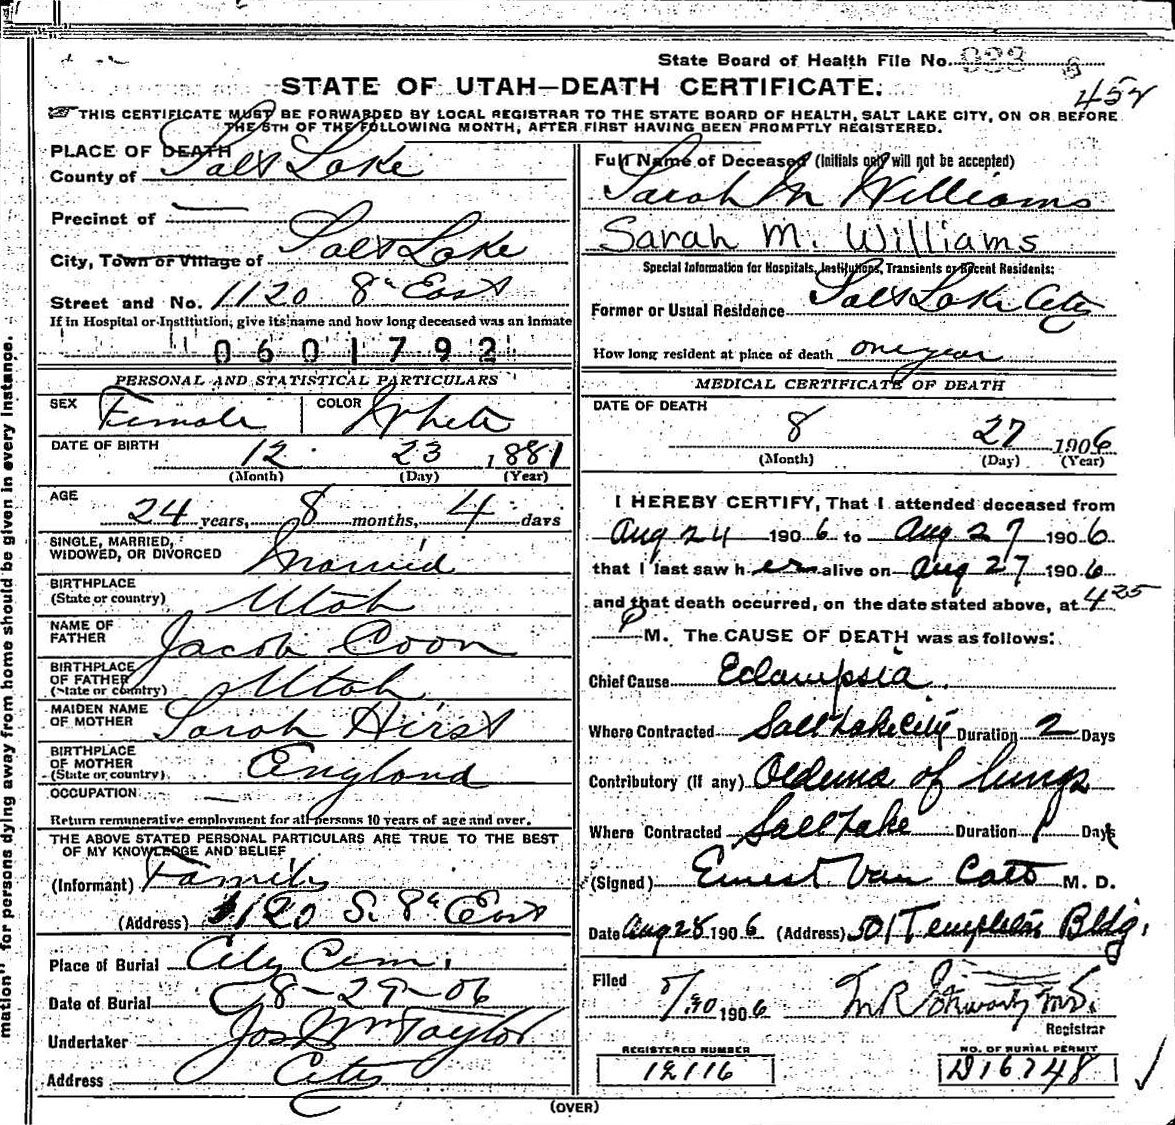 State Board of Health File No. 933
452
STATE OF UTAH—DEATH CERTIFICATE.
THIS CERTIFICATE MUST BE FORWARDED BY LOCAL REGISTRAR TO THE STATE BOARD OF HEALTH, SALT LAKE CITY, ON OR BEFORE
THE 5TH OF THE FOLLOWING MONTH, AFTER FIRST HAVING BEEN PROMPTLY REGISTERED.
PLACE OF DEATH
County of Salt Lake
Precinct of —
City, Town or Village of Salt Lake
Street and No. 1120 8th East
If in Hospital or Institution, give its name and how long deceased was an inmate
0601792
PERSONAL AND STATISTICAL PARTICULARS
SEX Female COLOR White
DATE OF BIRTH 12 23 1881
(Month) (Day) (Year)
AGE
24 years, 8 months, 4 days
SINGLE, MARRIED,
WIDOWED, OR DIVORCED Married
BIRTHPLACE
(State or country) Utah
NAME OF
FATHER Jacob Coon
BIRTHPLACE
OF FATHER
(State or country) Utah
MAIDEN NAME
OF MOTHER Sarah Hirst
BIRTHPLACE
OF MOTHER
(State or country) England
OCCUPATION —
Return remunerative employment for all persons 10 years of age and over.
THE ABOVE STATED PERSONAL PARTICULARS ARE TRUE TO THE BEST
OF MY KNOWLEDGE AND BELIEF
(Informant) Family
(Address) 1120 S. 8th East
Place of Burial City Cem.
Date of Burial 8-29-06
Undertaker Jos Wm Taylor
Address City
Full Name of Deceased (Initials only will not be accepted)
Sarah M Williams
Sarah M. Williams
Special Information for Hospitals, Institutions, Transients or Recent Residents:
Former or Usual Residence Salt Lake City
How long resident at place of death one year
MEDICAL CERTIFICATE OF DEATH
DATE OF DEATH
8 27 1906
(Month) (Day) (Year)
I HEREBY CERTIFY, That I attended deceased from
Aug 24 1906 to Aug 27 1906
that I last saw her alive on Aug 27 1906
and that death occurred, on the date stated above, at 4 25
P M. The CAUSE OF DEATH was as follows:
Chief Cause Eclampsia
Where Contracted Salt Lake City Duration 2 Days
Contributory (if any) Oedema of lungs
Where Contracted Salt Lake Duration 1 Days
(Signed) Ernest Van Cott M. D.
Date Aug 28 1906 (Address) 501 Templeton Bldg.
Filed 8/30 1906 Registrar
REGISTERED NUMBER
12116
NO. OF BURIAL PERMIT
D16748
(OVER)
mation" for persons dying away from home should be given in every instance.